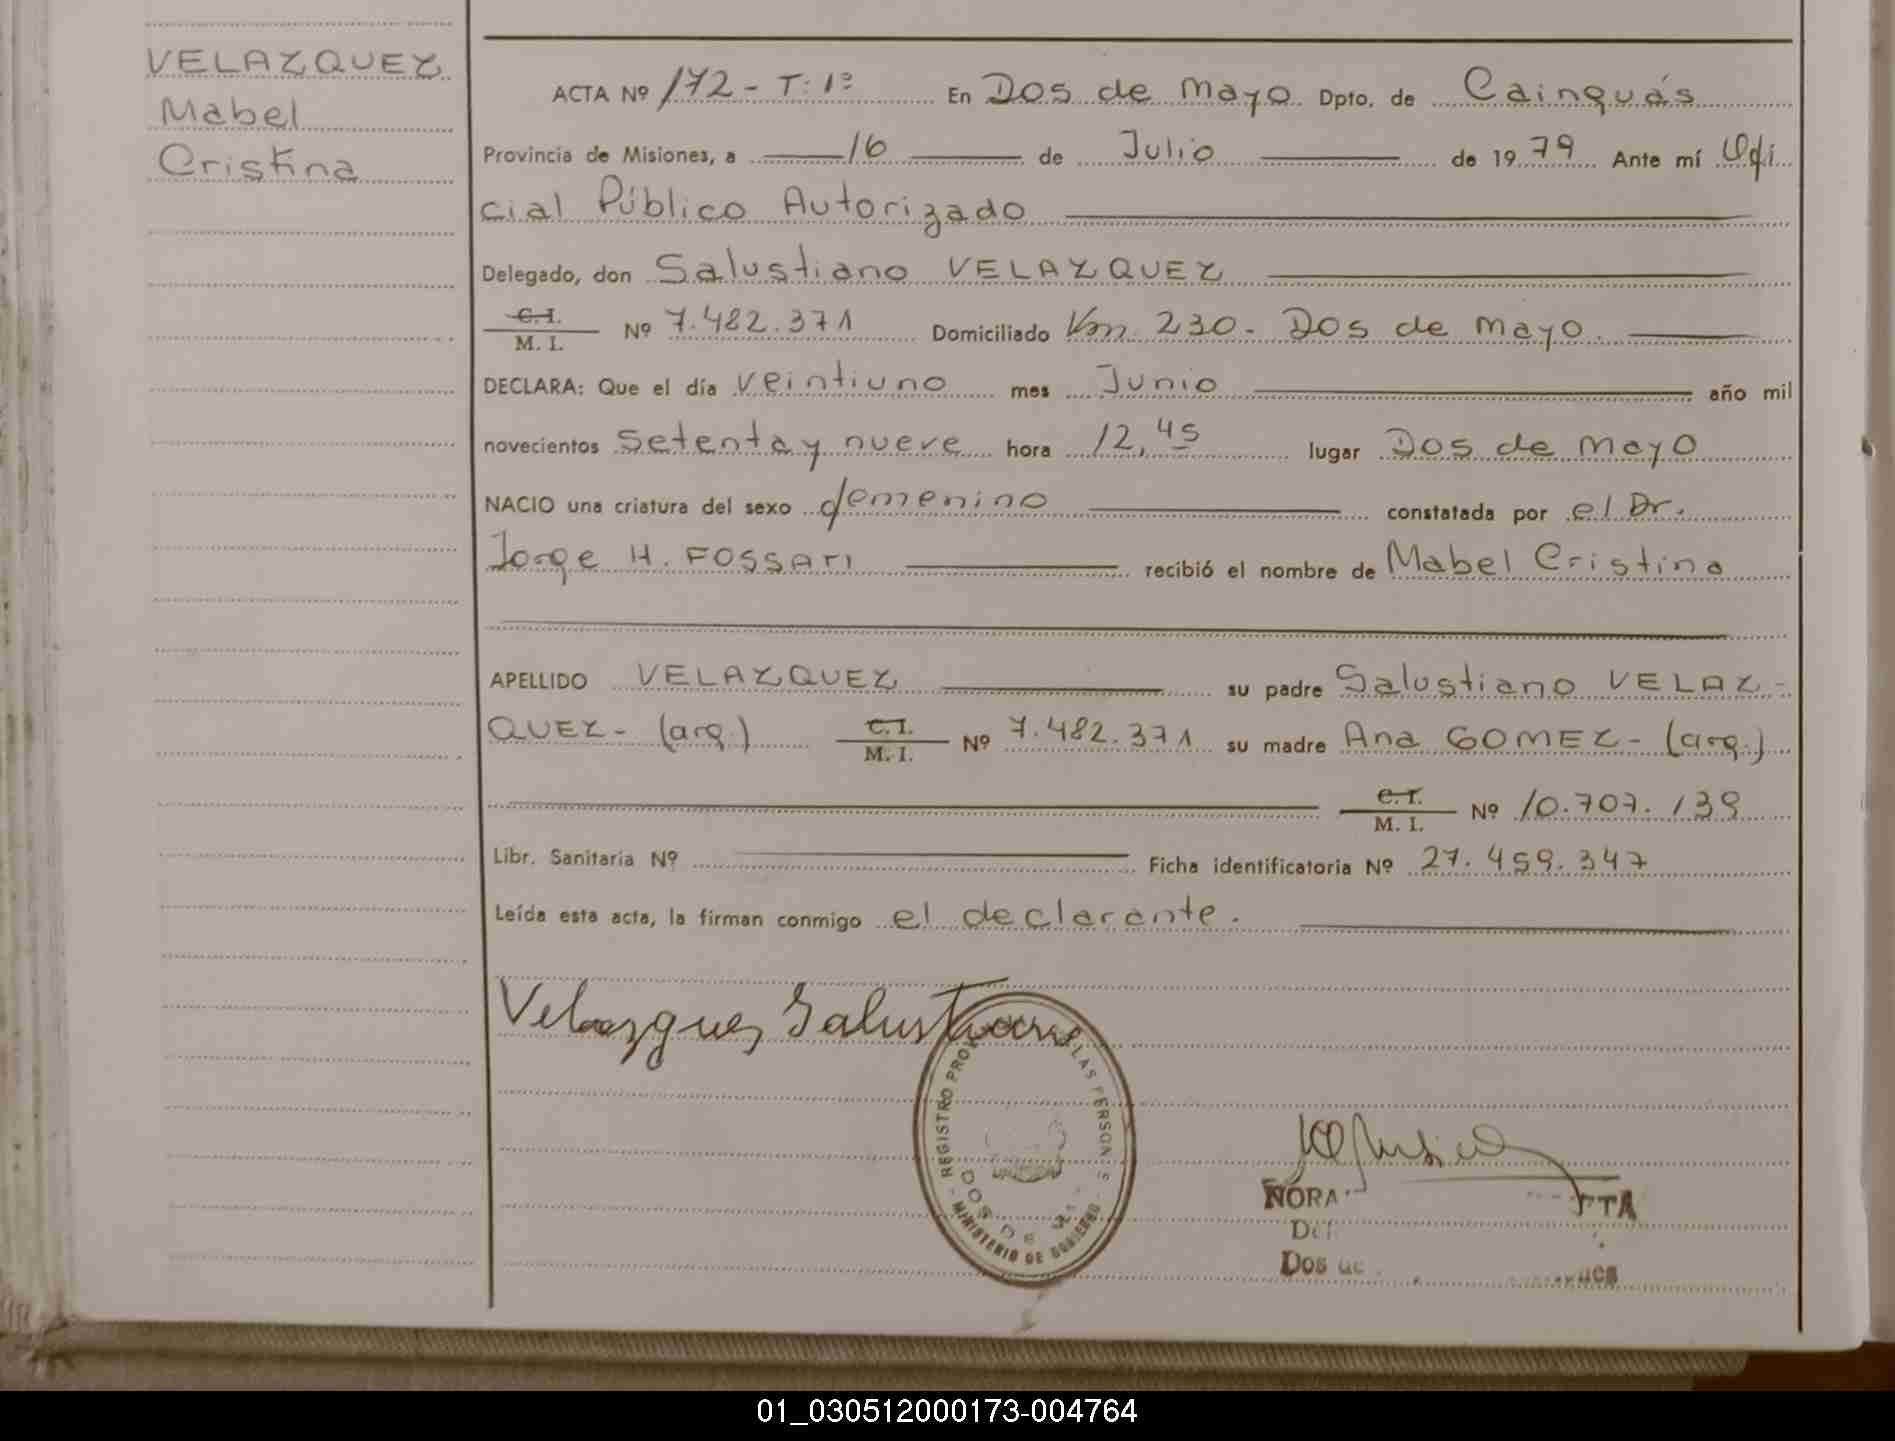 VELAZQUEZ
Mabel
Cristina
ACTA Nº 172 - T: 1º En Dos de Mayo Dpto. de Cainguás
Provincia de Misiones, a 16 de Julio de 1979 Ante mí Ofi
cial Público Autorizado
Delegado, don Salustiano VELAZQUEZ
C.I.
M. I. Nº 7.482.371 Domiciliado Km. 230 - Dos de Mayo.
DECLARA: Que el día veintiuno mes Junio año mil
novecientos setenta y nueve hora 12,45 lugar Dos de Mayo
NACIO una criatura del sexo femenino constatada por el Dr.
Jorge H. FOSSATI recibió el nombre de Mabel Cristina
APELLIDO VELAZQUEZ su padre Salustiano VELAZ-
QUEZ - (arg.) C.I. M. I. Nº 7.482.371 su madre Ana GOMEZ - (arg.)
C.I. M. I. Nº 10.707.139
Libr. Sanitaria Nº Ficha identificatoria Nº 27.459.347
Leída esta acta, la firman conmigo el declarante.
Velazquez Salustiano
REGISTRO PROV LAS PERSONAS
DOS DE
MINISTERIO DE GOBIERNO
NORA
Dos de
01_030512000173-004764